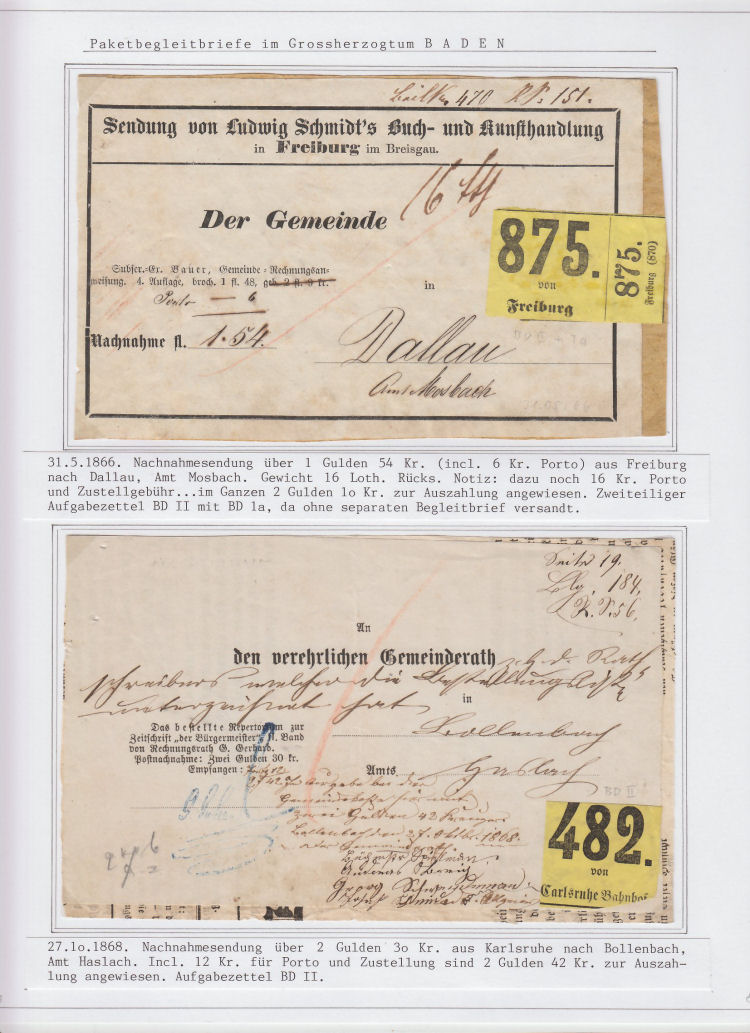 Paketbegleitbriefe im Grossherzogtum B A D E N
470 151.
Sendung von Ludwig Schmidt's Buch- und Kunsthandlung
in Freiburg im Breisgau.
16
Der Gemeinde
875.
von
Freiburg
875.
Freiburg (870)
Subscr.-Ex. Bauer, Gemeinde-Rechnungsan-
weisung. 4. Auflage, broch. 1 fl. 48, geb. 2 fl. 9 kr.
in
Porto — 6
Nachnahme fl. 1.54.
Dallau
Amt Mosbach
31.5.1866. Nachnahmesendung über 1 Gulden 54 Kr. (incl. 6 Kr. Porto) aus Freiburg
nach Dallau, Amt Mosbach. Gewicht 16 Loth. Rücks. Notiz: dazu noch 16 Kr. Porto
und Zustellgebühr...im Ganzen 2 Gulden 1o Kr. zur Auszahlung angewiesen. Zweiteiliger
Aufgabezettel BD II mit BD 1a, da ohne separaten Begleitbrief versandt.
Seite 19.
184.
R. P. 56.
An
den verehrlichen Gemeinderath z. H. d. Rath
schreibers welcher die Bestellungsliste
unterzeichnet hat
in
Bollenbach
Das bestellte Repertorium zur
Zeitschrift „der Bürgermeister“, II. Band
von Rechnungsrath G. Gerhard.
Postnachnahme: Zwei Gulden 30 kr.
Empfangen:
Amts. Haslach
in Ausgabe bei der
Gemeindekasse hier mit
zwei Gulden 42 Kreuzer
Bollenbach den 27. Oktbr. 1868.
der Gemeinderath
BD II
482.
von
Carlsruhe Bahnhof
27.1o.1868. Nachnahmesendung über 2 Gulden 3o Kr. aus Karlsruhe nach Bollenbach,
Amt Haslach. Incl. 12 Kr. für Porto und Zustellung sind 2 Gulden 42 Kr. zur Auszah-
lung angewiesen. Aufgabezettel BD II.